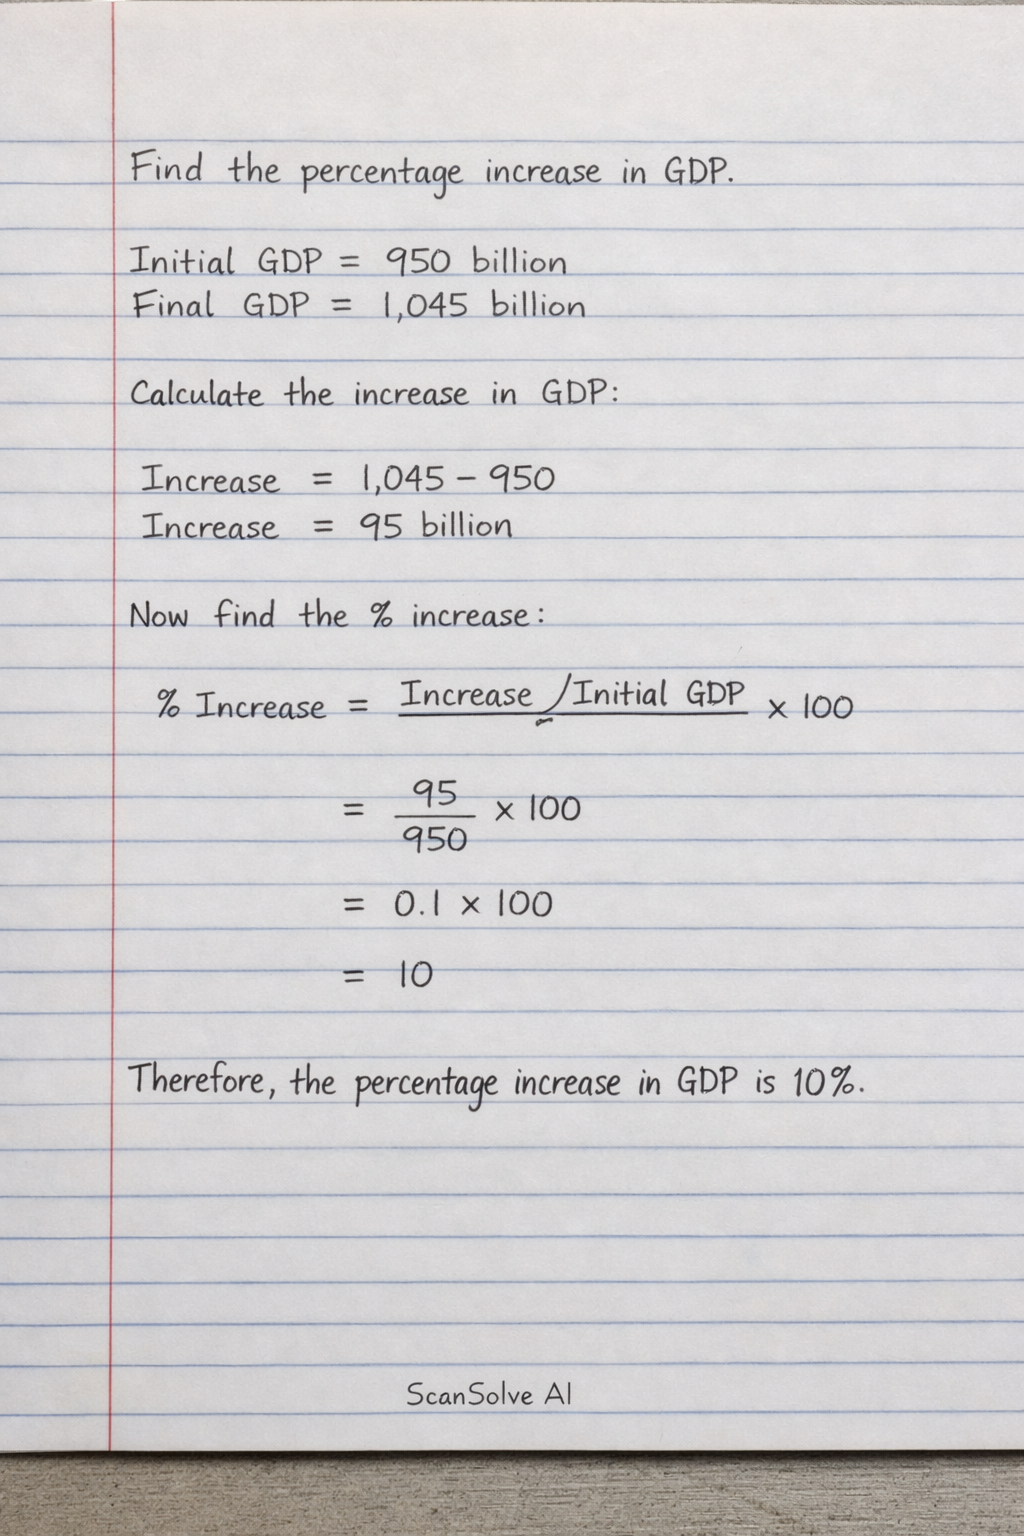 Find the percentage increase in GDP.
Initial GDP = 950 billion
Final GDP = 1,045 billion
Calculate the increase in GDP:
Increase = 1,045 - 950
Increase = 95 billion
Now find the % increase:
% Increase = Increase / Initial GDP × 100
= 95/950 × 100
= 0.1 × 100
= 10
Therefore, the percentage increase in GDP is 10%.
ScanSolve AI